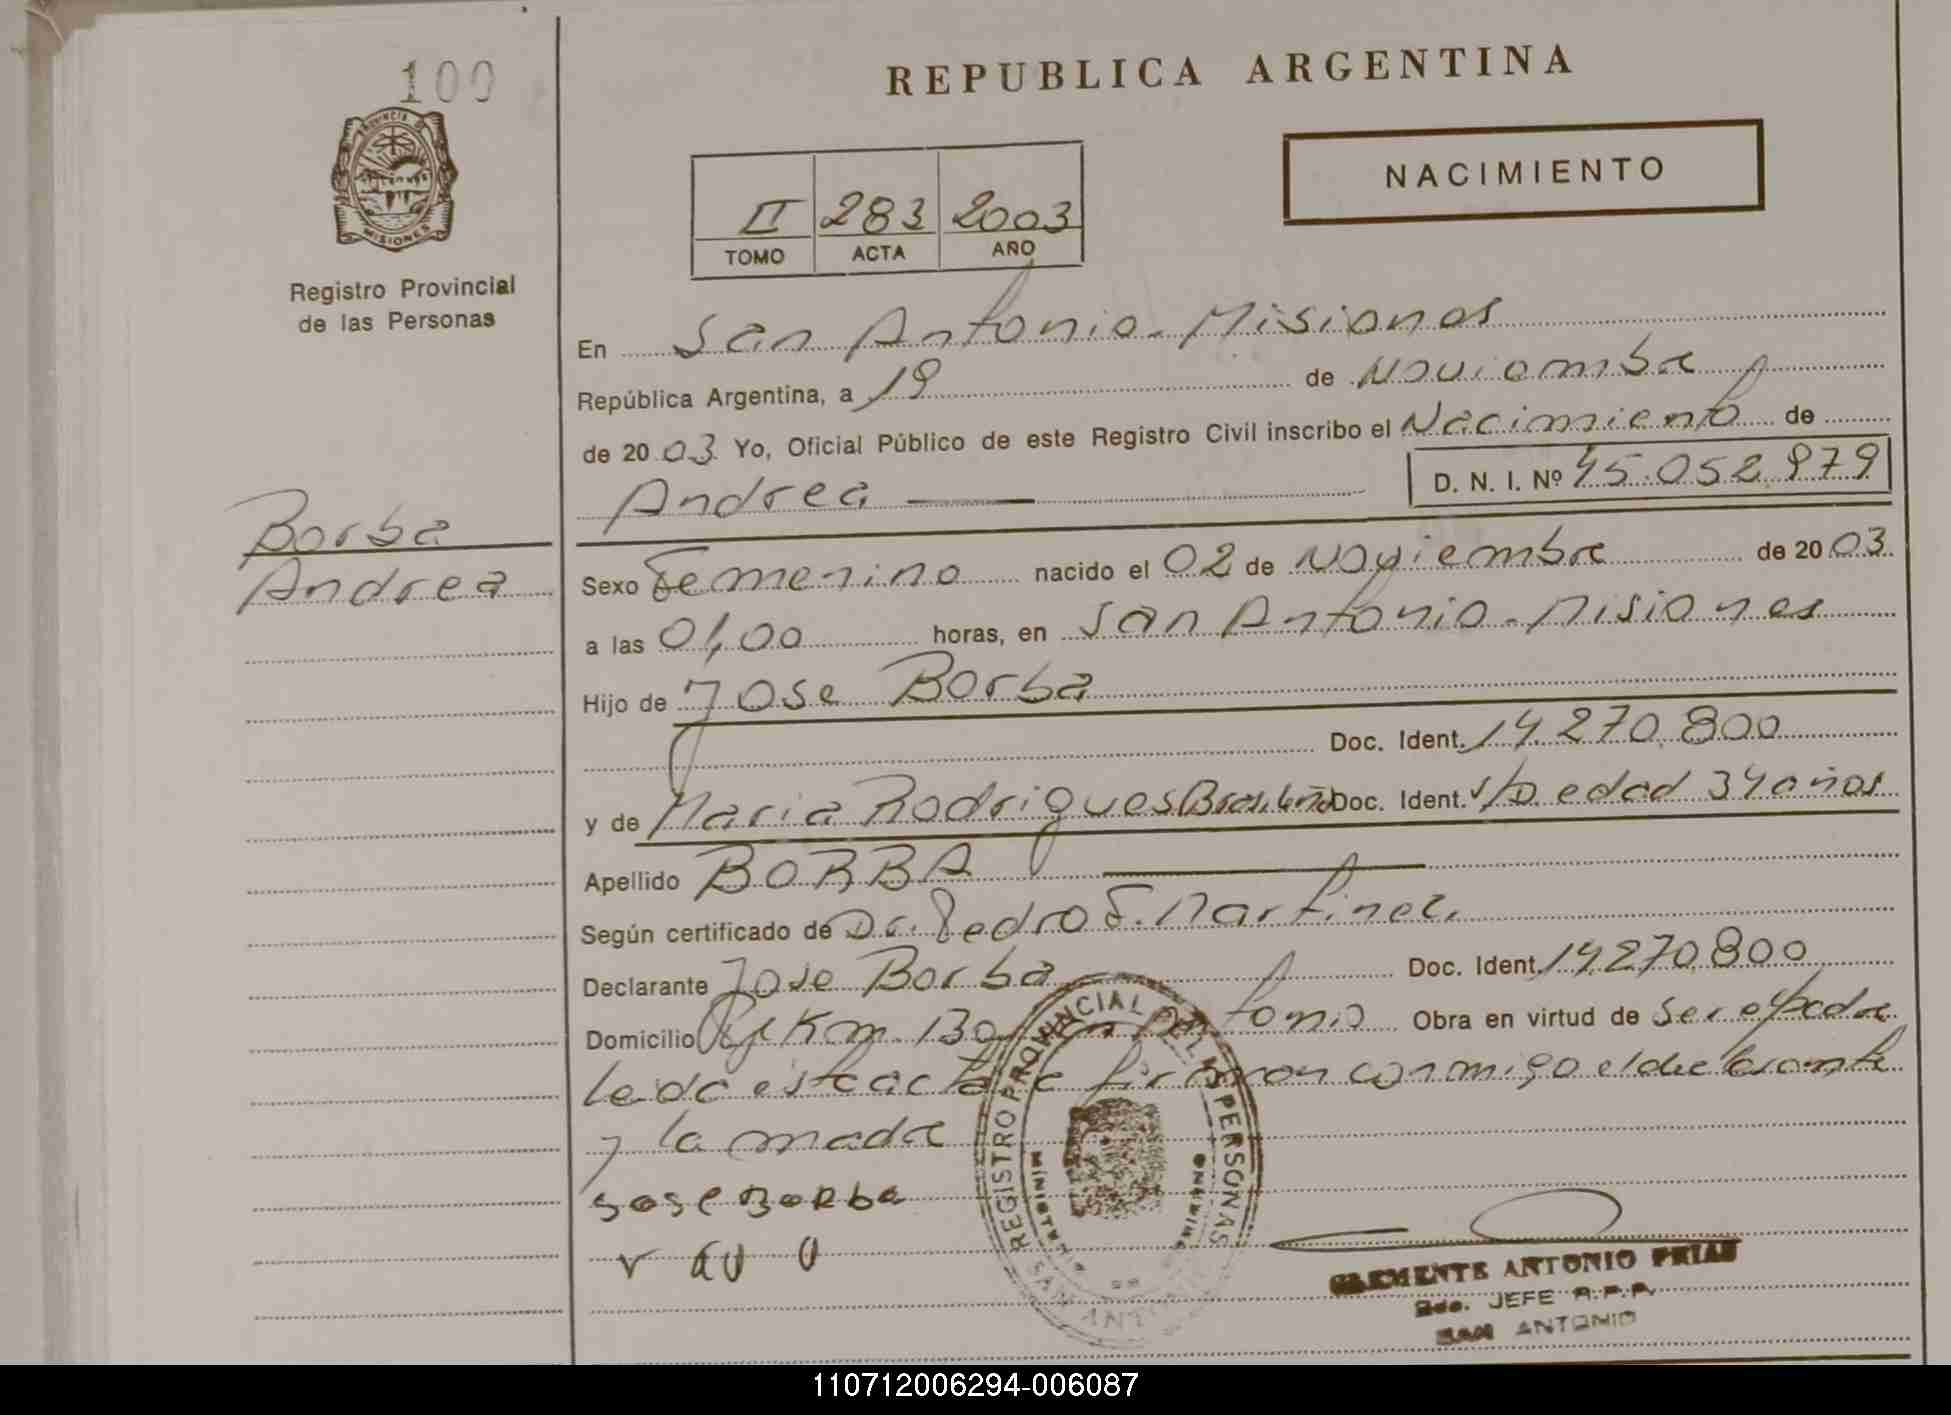 100
PROVINCIA DE
MISIONES
Registro Provincial
de las Personas
REPUBLICA ARGENTINA
NACIMIENTO
II 283 2003
TOMO ACTA AÑO
En San Antonio - Misiones
República Argentina, a 19 de Noviembre
de 2003 Yo, Oficial Público de este Registro Civil inscribo el Nacimiento de
Andrea D. N. I. Nº 45.052.979
Borba
Andrea
Sexo Femenino nacido el 02 de Noviembre de 2003
a las 01,00 horas, en San Antonio - Misiones
Hijo de Jose Borba
Doc. Ident. 14.270.800
y de Maria Rodrigues Brasileña Doc. Ident. s/D edad 34 años
Apellido BORBA
Según certificado de Dr. Pedro F. Martinez.
Declarante Jose Borba Doc. Ident. 14.270.800
Domicilio Km. 130 San Antonio Obra en virtud de ser el padre
leida esta acta la firman conmigo el declarante
y la madre
Jose Borba
REGISTRO PROVINCIAL DE LAS PERSONAS
SAN ANTONIO
CLEMENTE ANTONIO FRIAS
2do. JEFE R.P.P.
SAN ANTONIO
110712006294-006087